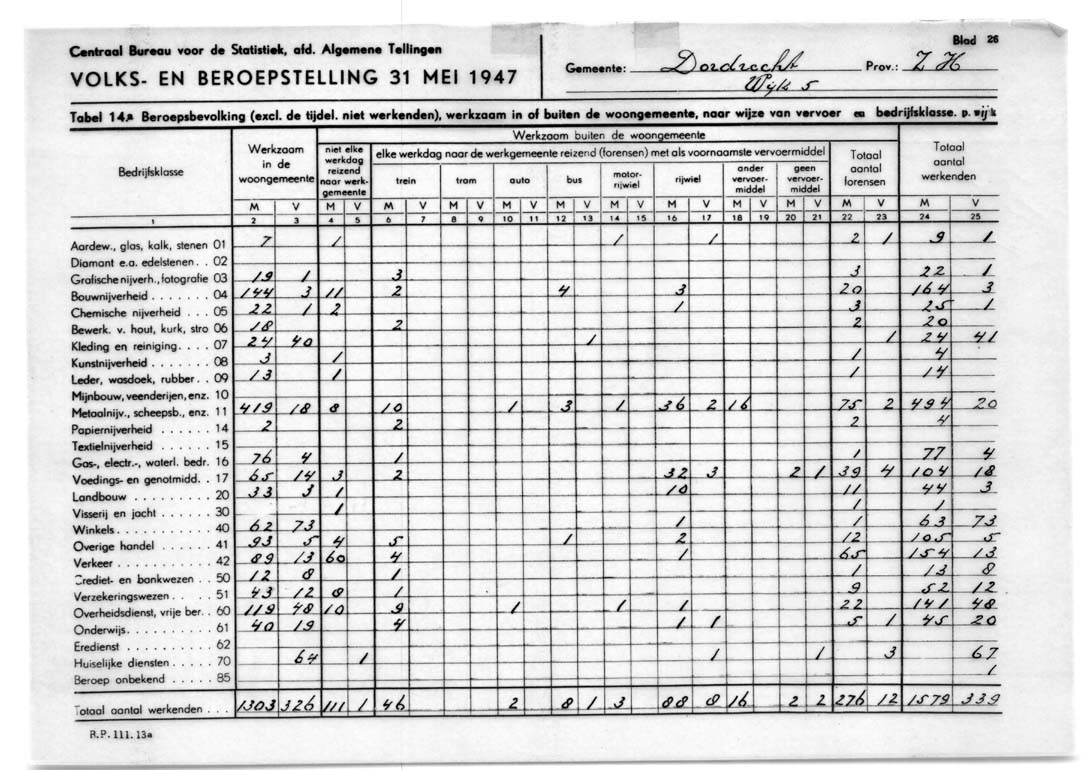 Centraal Bureau voor de Statistiek, afd. Algemene Tellingen
VOLKS- EN BEROEPSTELLING 31 MEI 1947
Blad 26
Gemeente: Dordrecht Prov.: Z H
Wijk 5
Tabel 14a Beroepsbevolking (excl. de tijdel. niet werkenden), werkzaam in of buiten de woongemeente, naar wijze van vervoer en bedrijfsklasse. p. wijk
Bedrijfsklasse
Werkzaam in de woongemeente
Werkzaam buiten de woongemeente
niet elke werkdag reizend naar werk-gemeente
elke werkdag naar de werkgemeente reizend (forensen) met als voornaamste vervoermiddel
trein tram auto bus motor-rijwiel rijwiel ander vervoer-middel geen vervoer-middel
Totaal aantal forensen
Totaal aantal werkenden
M V M V M V M V M V M V M V M V M V M V M V M V
1 2 3 4 5 6 7 8 9 10 11 12 13 14 15 16 17 18 19 20 21 22 23 24 25
Aardew., glas, kalk, stenen 01 7 1 1 1 2 1 9 1
Diamant e.a. edelstenen . . 02
Grafische nijverh., fotografie 03 19 1 3 3 22 1
Bouwnijverheid . . . . . . . 04 144 3 11 2 4 3 20 164 3
Chemische nijverheid . . . 05 22 1 2 1 3 25 1
Bewerk. v. hout, kurk, stro 06 18 2 2 20
Kleding en reiniging. . . . 07 24 40 1 1 24 41
Kunstnijverheid . . . . . . 08 3 1 1 4
Leder, wasdoek, rubber . . 09 13 1 1 14
Mijnbouw, veenderijen, enz. 10
Metaalnijv., scheepsb., enz. 11 419 18 8 10 1 3 1 36 2 16 75 2 494 20
Papiernijverheid . . . . . . 14 2 2 2 4
Textielnijverheid . . . . . . 15
Gas-, electr.-, waterl. bedr. 16 76 4 1 1 77 4
Voedings- en genotmidd. . 17 65 14 3 2 32 3 2 1 39 4 104 18
Landbouw . . . . . . . . 20 33 3 1 10 11 44 3
Visserij en jacht . . . . . 30 1 1 1
Winkels . . . . . . . . . 40 62 73 1 1 63 73
Overige handel . . . . . . 41 93 5 4 5 1 2 12 105 5
Verkeer . . . . . . . . . 42 89 13 60 4 1 65 154 13
Crediet- en bankwezen . . 50 12 8 1 1 13 8
Verzekeringswezen. . . . . 51 43 12 8 1 9 52 12
Overheidsdienst, vrije ber. . 60 119 48 10 9 1 1 1 22 141 48
Onderwijs. . . . . . . . . 61 40 19 4 1 1 5 1 45 20
Eredienst . . . . . . . . . 62
Huiselijke diensten . . . . . 70 64 1 1 1 3 67
Beroep onbekend . . . . . 85 1
Totaal aantal werkenden . . . 1303 326 111 1 46 2 8 1 3 88 8 16 2 2 276 12 1579 339
R.P. 111.13a